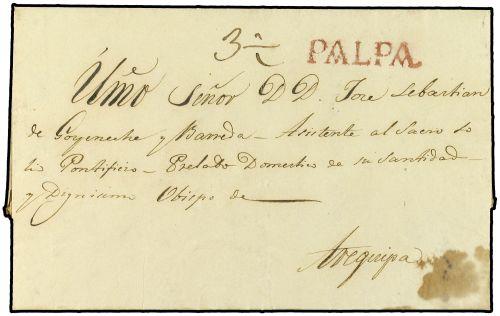 3 PALPA
Ylmõ Señor D D. Jose Sebastian
de Goyeneche y Barreda – Asistente al Sacro So
lio Pontificio – Prelado Domestico de su Santidad –
y Dignisimo Obispo de ——
Arequipa